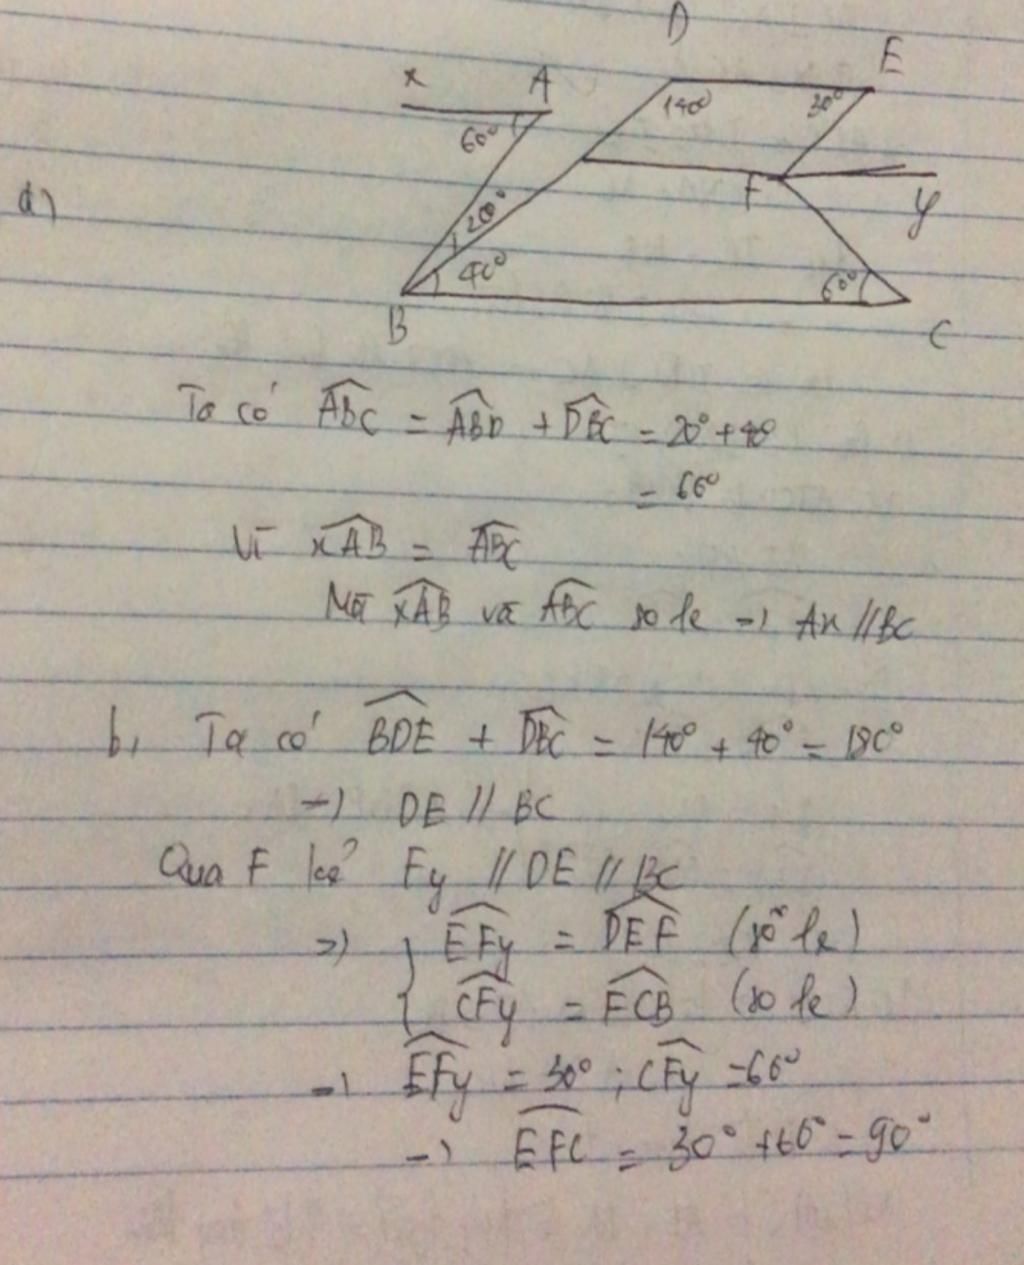 D
E
x A
140° 30°
60°
a)
F
20°
y
40°
60°
B
C
Ta có ABC = ABD + DBC = 20° + 40°
= 60°
Vì xAB = ABC
Mà xAB và ABC so le => Ax // BC
b, Ta có BDE + DBC = 140° + 40° = 180°
=> DE // BC
Qua F kẻ Fy // DE // BC
=> { EFy = DEF (so le)
CFy = FCB (so le)
=> EFy = 30° ; CFy = 60°
=> EFC = 30° + 60° = 90°